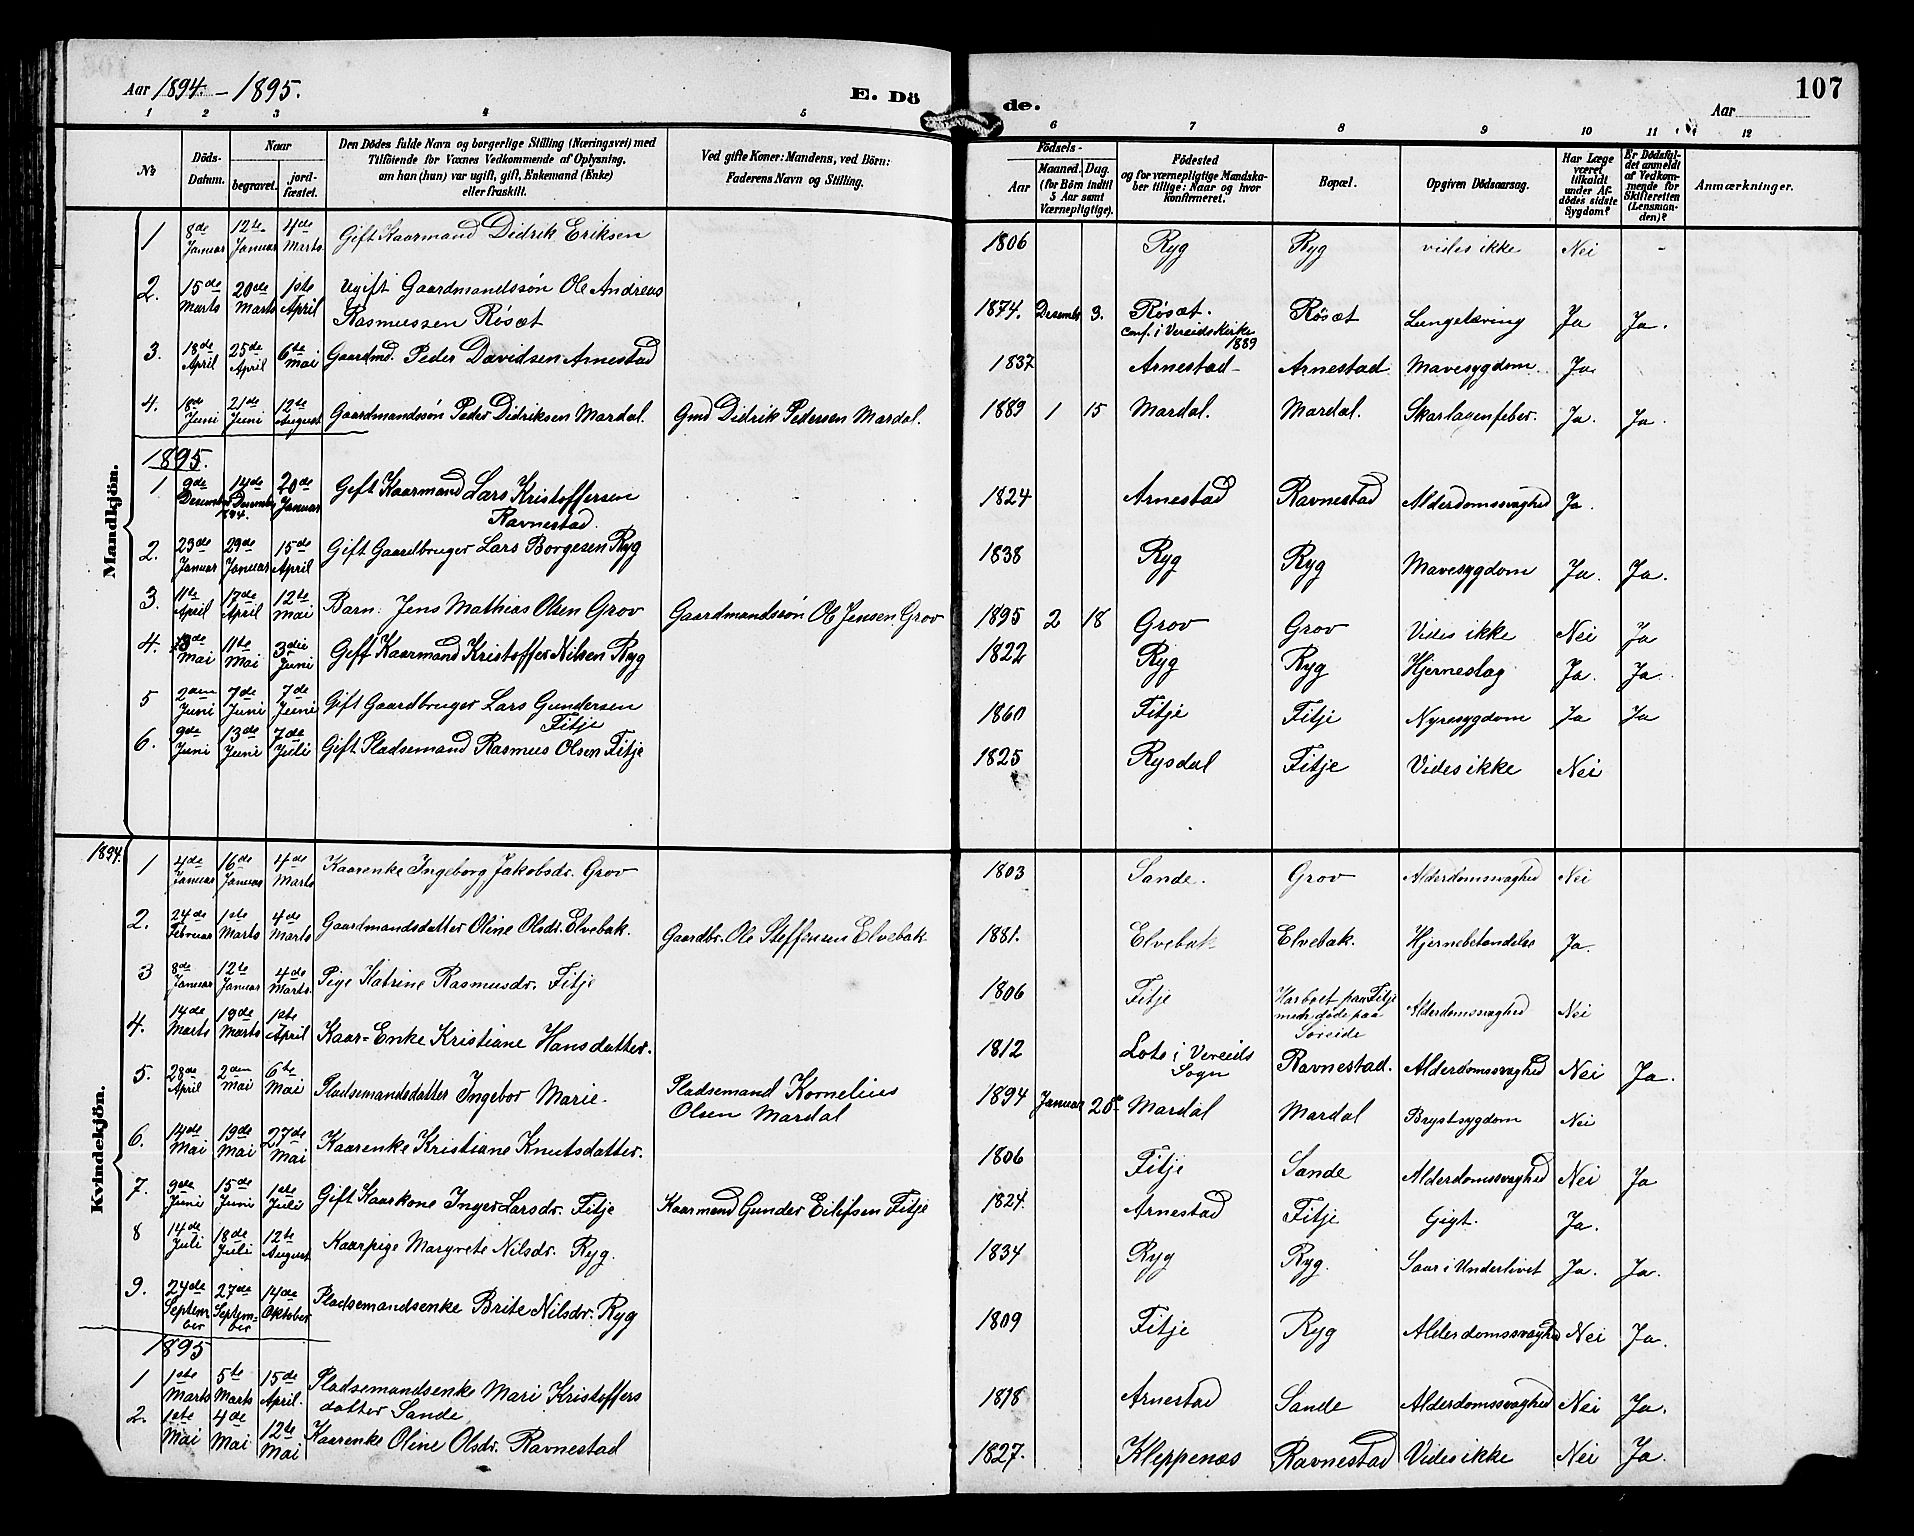 Aar 1894 - 1895. E. Dö de. Aar 107
1 2 3 4 5 6 7 8 9 10 11 12
No Döds-Datum. Naar begravet. jordfæstet. Den Dödes fulde Navn og borgerlige Stilling (Næringsvei) med Tilföiende for Voxnes Vedkommende af Oplysning, om han (hun) var ugift, gift, Enkemand (Enke) eller fraskilt. Ved gifte Koner: Mandens, ved Börn: Faderens Navn og Stilling. Födsels- Aar Maaned. Dag. (for Börn indtil 5 Aar samt Værnepligtige). Födested og for værnepligtige Mandskaber tillige: Naar og hvor konfirmeret. Bopæl. Opgiven Dödsaarsag. Har Læge været tilkaldt under Afdödes sidste Sygdom? Er Dödsfaldet anmeldt af Vedkommende for Skifteretten (Lensmanden)? Anmærkninger.
Mandkjön.
1 8de Januar 12te Januar 4de Marts Gift Kaarmand Didrik Eriksen 1806 Ryg Ryg vides ikke Nei -
2. 15de Marts 20de Marts 1ste April Ugift Gaardmandssøn Ole Andreas Rasmussen Røsæt 1874. Desember 3. Røsæt. conf. i Vereids Kirke 1889 Røsæt Lungetæring Ja Ja.
3. 18de April 25de April 6te Mai Gaardmd. Peder Davidsen Arnestad 1837 Arnestad- Arnestad Mavesygdom Ja
4. 18de Juni 21de Juni 12te August Gaardmandssøn Peder Didriksen Mardal. Gmd Didrik Pedersen Mardal. 1889 1 15 Mardal. Mardal. Skarlagensfeber. Ja. Ja.
1895.
1 9de Desember 14de Desember 1894. 20de Januar Gift Kaarmand Lars Kristoffersen Ravnestad. 1824 Arnestad Ravnestad Alderdomssvaghed Ja.
2. 23de Januar 29de Januar 15de April Gift Gaardbruger Lars Borgesen Ryg 1838 Ryg Ryg Mavesygdom Ja. Ja.
3. 11te April 17de April 12te Mai Barn: Jens Mathias Olsen Grov Gaardmandssøn Ole Jensen Grov 1895 2 18 Grov Grov Vides ikke Nei Ja
4. 3de Mai 11te Mai 3die Juni Gift Kaarmand Kristoffer Nilsen Ryg 1822 Ryg Ryg Hjerneslag Ja. Ja.
5 2den Juni 7de Juni 7de Juni Gift Gaardbruger Lars Gundersen Fitje 1860 Fitje Fitje Nyresygdom Ja Ja
6. 9de Juni 13de Juni 7de Juli Gift Pladsemand Rasmus Olsen Fitje 1825 Rysdal Fitje Vides ikke Nei
Kvindekjön.
1894. 1 4de Januar 16de Januar 4de Marts Kaarenke Ingeborg Jakobsdr. Grov 1803 Sande. Grov Alderdomssvaghed Nei
2. 24de Februar 1ste Marts 4de Marts Gaardmandsdatter Oline Olsdr. Elvebak. Gaardbr. Ole Steffensen Elvebak 1881. Elvebak Elvebak. Hjernebetændelse Ja.
3 8de Januar 12te Januar 4de Marts. Pige Katrine Rasmusdr. Fitje 1806 Fitje Har boet paa Fitje men døde paa Søreide Alderdomssvaghed Nei
4. 14de Marts 19de Marts 1ste April Kaar-Enke Kristiane Hansdatter. 1812 Lote i Vereids Sogn Ravnestad. Alderdomssvaghed Nei Ja.
5. 28de April 2den Mai 6te Mai Pladsemandsdatter Ingebor Marie. Pladsemand Kornelius Olsen Mardal 1894 Januar Mardal Mardal Brystsygdom Nei
6. 14de Mai 19de Mai 27de Mai Kaarenke Kristiane Knutsdatter. 1806 Fitje Sande Alderdomssvaghed Nei Ja
7. 9de Juni 15de Juni 1ste Juli Gift Kaarkone Inger Larsdr. Fitje Kaarmand Gunder Eilifsen Fitje 1824. Arnestad Fitje Gigt. Ja.
8 14de Juli 18de Juli 12te August Kaarpige Margrete Nilsdr. Ryg. 1834 Ryg Ryg. Saar i Underlivet Ja. Ja.
9. 24de September 27de September 14de Oktober Pladsemandsenke Brite Nilsdr. Ryg 1809 Fitje Ryg Alderdomssvaghed Nei Ja.
1895
1 1ste Marts 5te Marts 15de April. Pladsemandsenke Mari Kristoffersdatter Sande 1818 Arnestad Sande Alderdomssvaghed Nei Ja.
2. 1ste Mai 4de Mai 12te Mai Kaarenke Oline Olsdr. Ravnestad 1827. Kleppenæs Ravnestad Vides ikke Nei Ja.